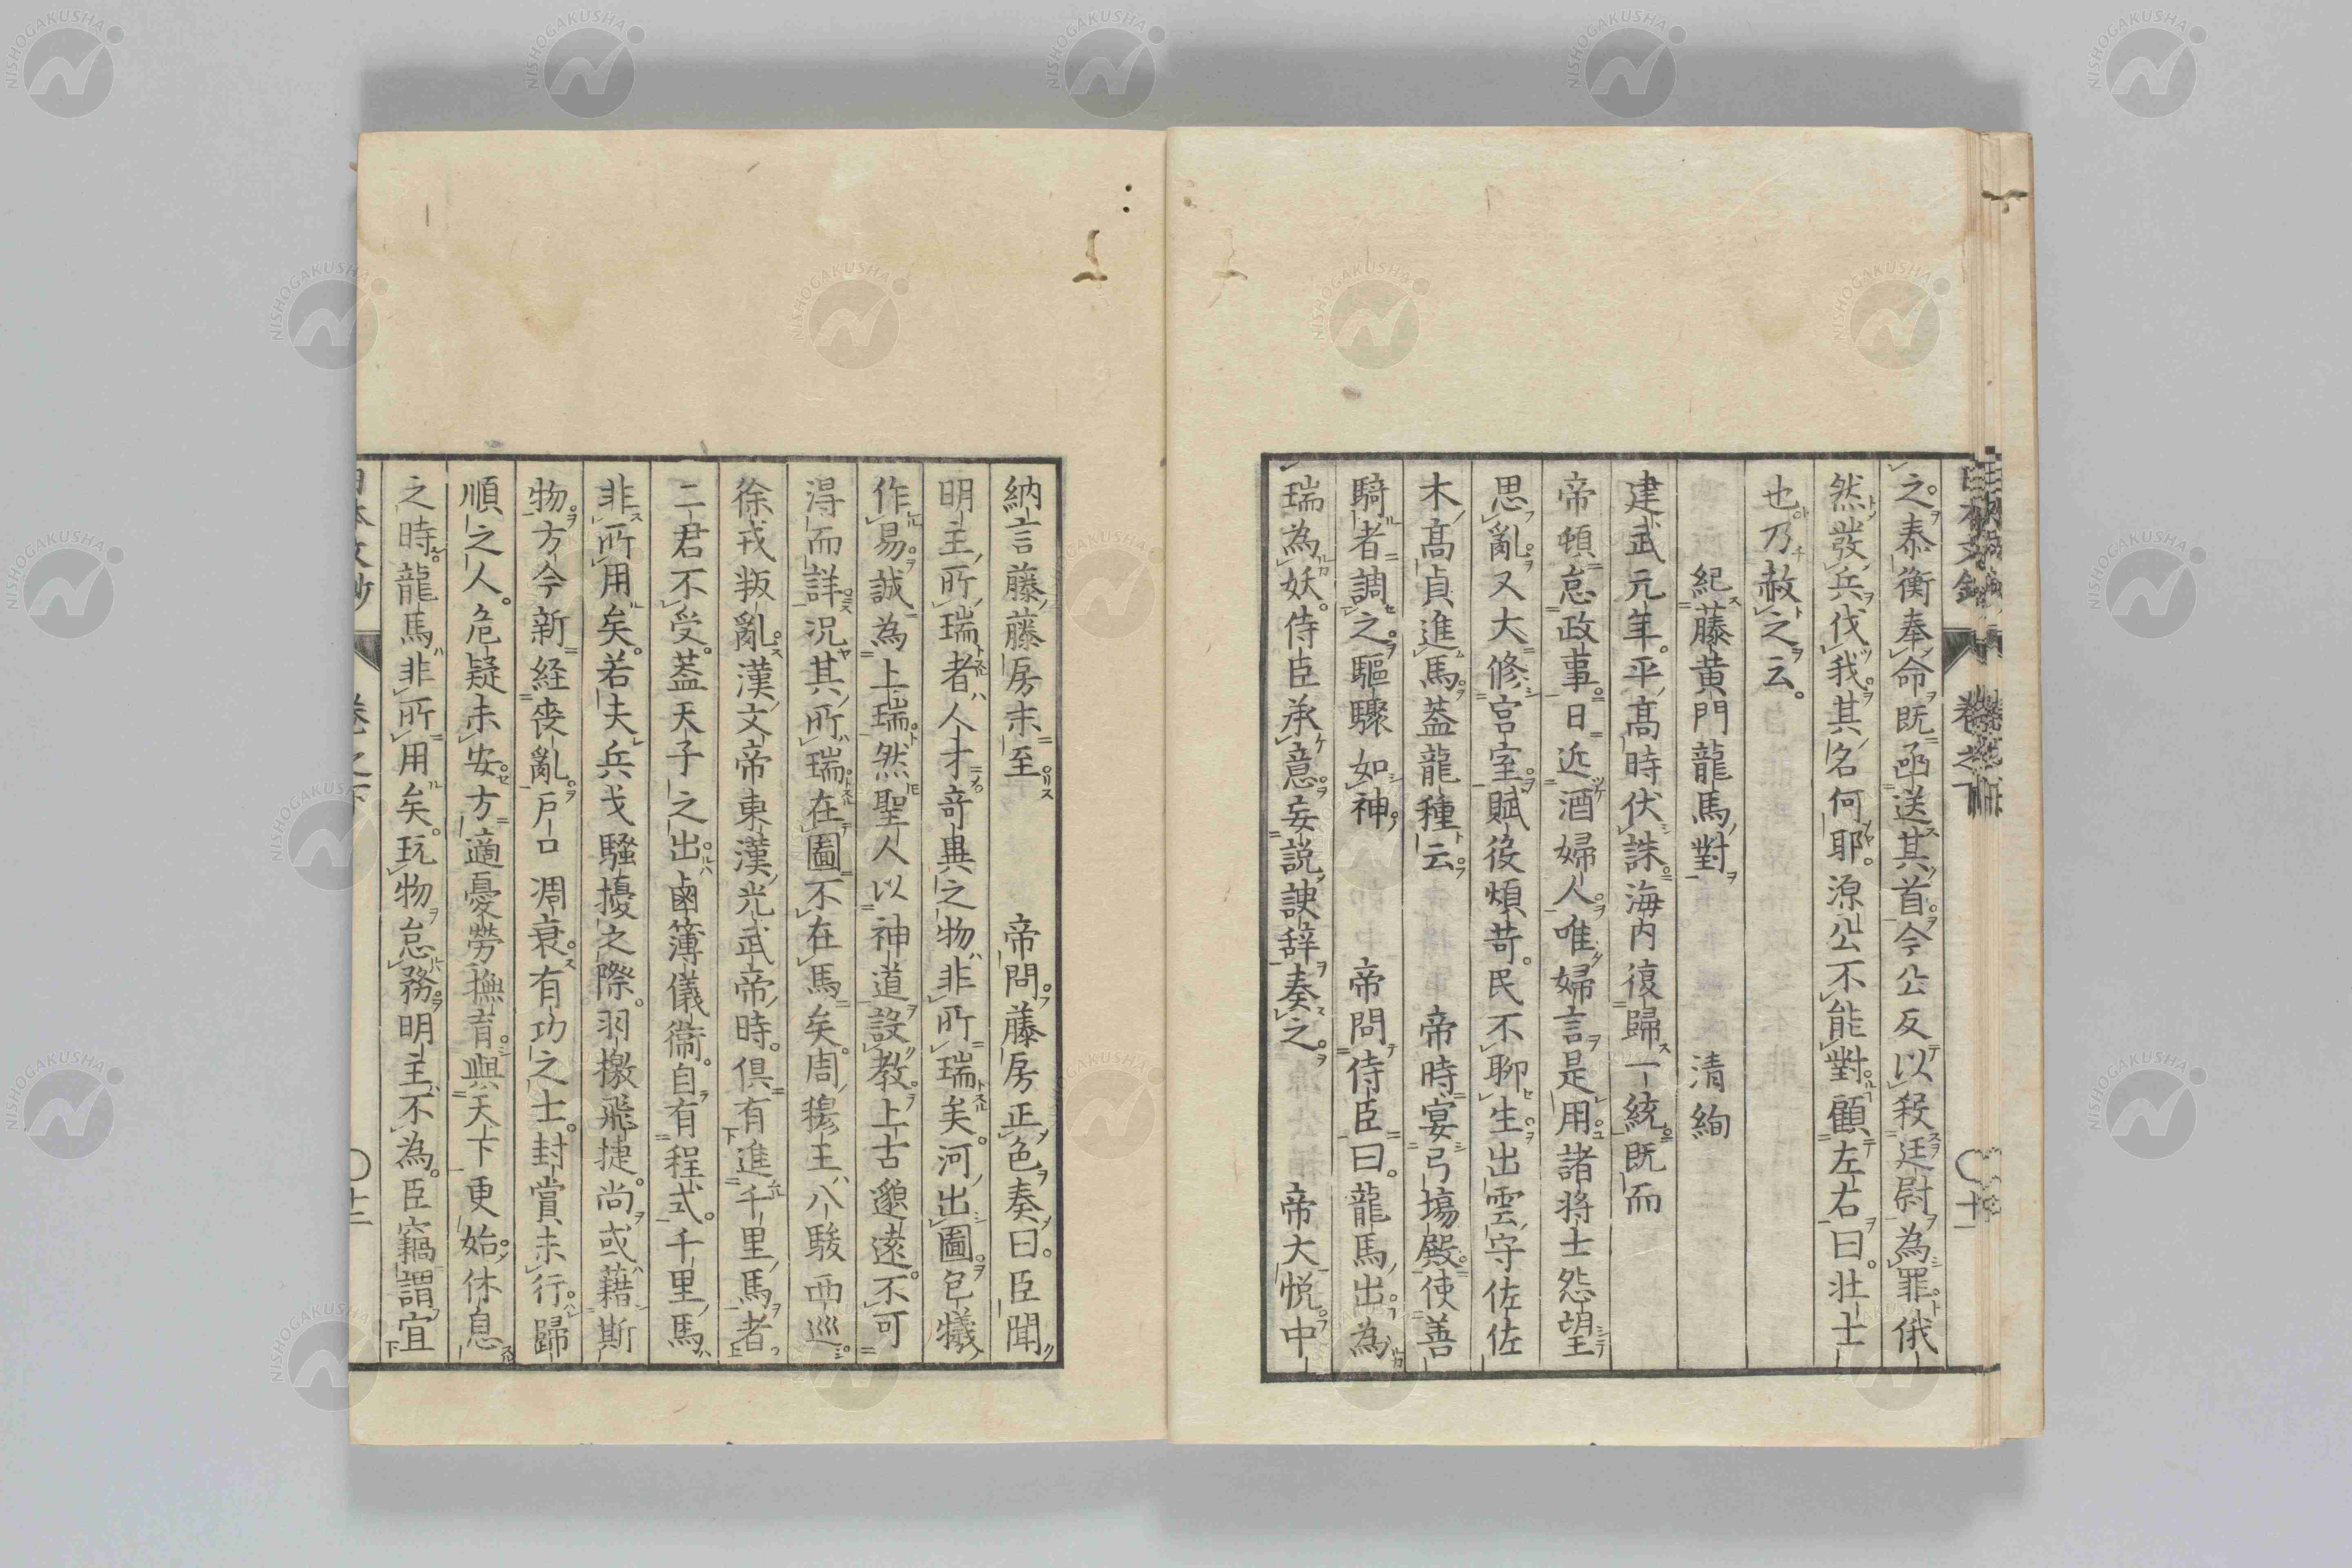 之。泰衡奉命既函送其首。今公反以殺廷尉為罪。俄
然發兵伐我。其名何耶。源公不能對。顧左右曰。壮士
也乃赦之云。
紀藤黄門龍馬對 清絢
建武元年。平高時伏誅。海内復歸一統。既而
帝頓怠政事。日近酒婦人。唯婦言是用。諸将士怨望
思亂。又大修宮室。賦役煩苛。民不聊生。出雲守佐佐
木高貞進馬。蓋龍種云。 帝時宴弓場殿。使善
騎者調之。驅驟如神。 帝問侍臣曰。龍馬出。為
瑞為妖。侍臣承意。妄説諛辞奏之。 帝大悦。中
納言藤藤房未至。 帝問。藤房正色奏曰。臣聞
明主所瑞者。人才竒異之物。非所瑞矣。河出圖。包犧
作易。誠為上瑞。然聖人以神道設教。上古邈遠。不可
得而詳。況其所瑞在圖。不在馬矣。周穆王八駿西巡。
徐戎叛亂。漢文帝東漢光武帝時。倶有進千里馬者。
二君不受。蓋天子之出。鹵簿儀衞。自有程式。千里馬
非所用矣。若夫兵戈騷擾之際。羽檄飛捷。尚或藉斯
物。方今新経喪亂。戸口凋衰。有功之士。封賞未行。歸
順之人。危疑未安。方適憂勞撫育。與天下更始。休息
之時。龍馬非所用矣。玩物怠務。明主不為。臣竊謂宜
卷之下
NISHOGAKUSHA